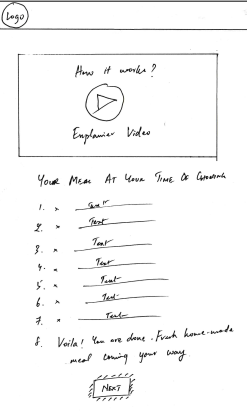 Logo
How it works?
Explainer Video
YOUR MEAL AT YOUR TIME OF
1. × Text
2. × Text
3. × Text
4. × Text
5. × Text
6. × Text
7. × Text
8. Voila! You are done. Fresh home-made
meal coming your way
NEXT